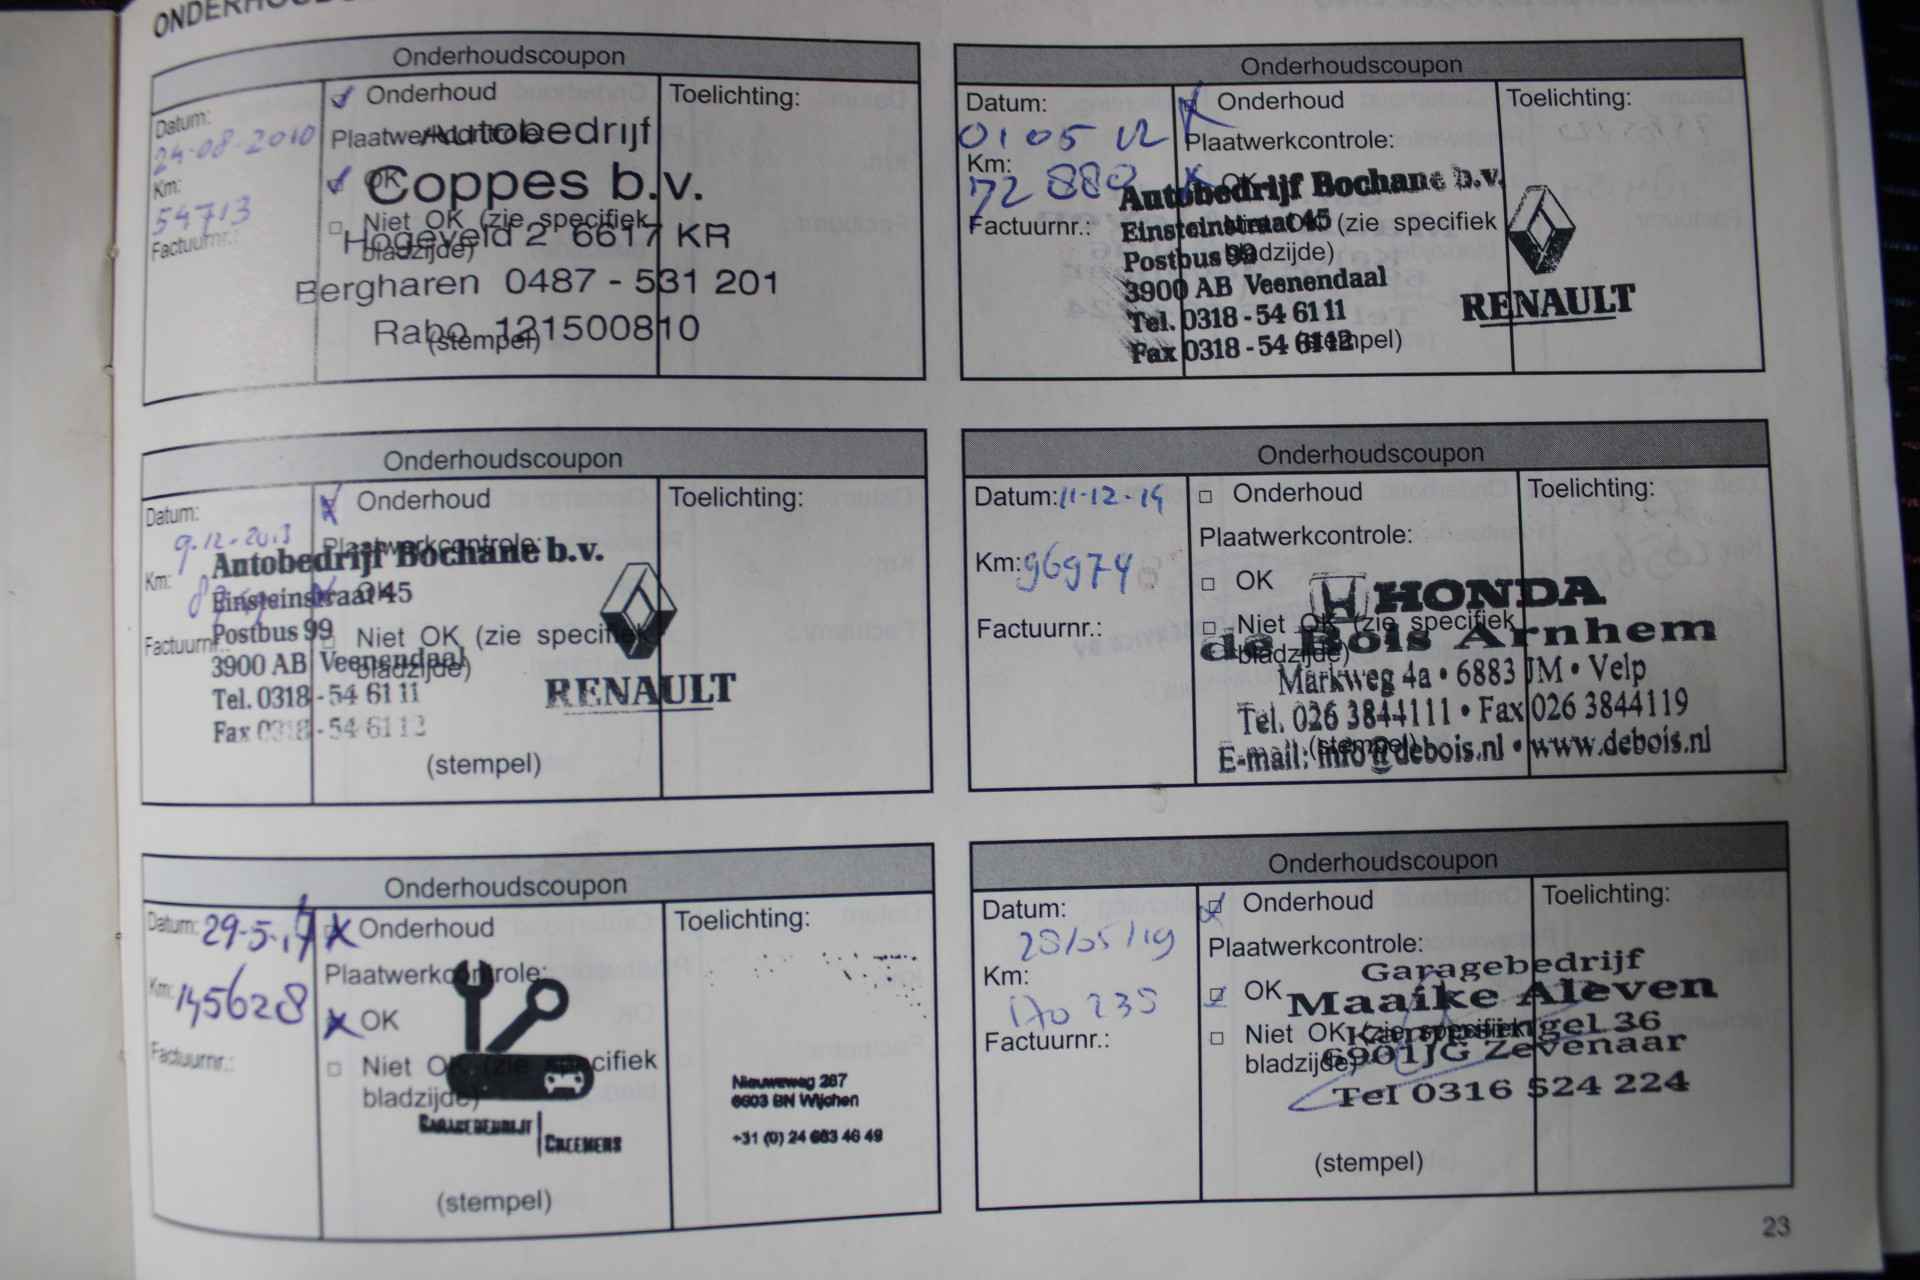 Onderhoudscoupon
Datum:
24-08-2010
Km:
54713
Factuurnr.:
Onderhoud
Plaatwerkcontrole:
OK
Niet OK (zie specifiek
bladzijde)
(stempel)
Toelichting:
Autobedrijf
Coppes b.v.
Hogeveld 2 6617 KR
Bergharen 0487 - 531 201
Rabo 121500810
Onderhoudscoupon
Datum:
01 05 12
Km:
72 880
Factuurnr.:
Onderhoud
Plaatwerkcontrole:
OK
Niet OK (zie specifiek
bladzijde)
(stempel)
Toelichting:
Autobedrijf Bochane b.v.
Einsteinstraat 45
Postbus 99
3900 AB Veenendaal
Tel. 0318 - 54 61 11
Fax 0318 - 54 61 12
RENAULT
Onderhoudscoupon
Datum:
9-12-2013
Km:
Factuurnr.:
Onderhoud
Plaatwerkcontrole:
OK
Niet OK (zie specifiek
bladzijde)
(stempel)
Toelichting:
Autobedrijf Bochane b.v.
Einsteinstraat 45
Postbus 99
3900 AB Veenendaal
Tel. 0318 - 54 61 11
Fax 0318 - 54 61 12
RENAULT
Onderhoudscoupon
Datum: 11-12-14
Km: 96974
Factuurnr.:
Onderhoud
Plaatwerkcontrole:
OK
Niet OK (zie specifiek
bladzijde)
(stempel)
Toelichting:
HONDA
de Bois Arnhem
Markweg 4a • 6883 JM • Velp
Tel. 026 3844111 • Fax 026 3844119
E-mail: info@debois.nl • www.debois.nl
Onderhoudscoupon
Datum: 29-5-17
Km: 145628
Factuurnr.:
Onderhoud
Plaatwerkcontrole:
OK
Niet OK (zie specifiek
bladzijde)
(stempel)
Toelichting:
GARAGEBEDRIJF
CREEMERS
Nieuweweg 287
6603 BN Wijchen
+31 (0) 24 663 46 49
Onderhoudscoupon
Datum:
28/05/19
Km:
170 235
Factuurnr.:
Onderhoud
Plaatwerkcontrole:
OK
Niet OK (zie specifiek
bladzijde)
(stempel)
Toelichting:
Garagebedrijf
Maaike Aleven
Kampsingel 36
6901JG Zevenaar
Tel 0316 524 224
23